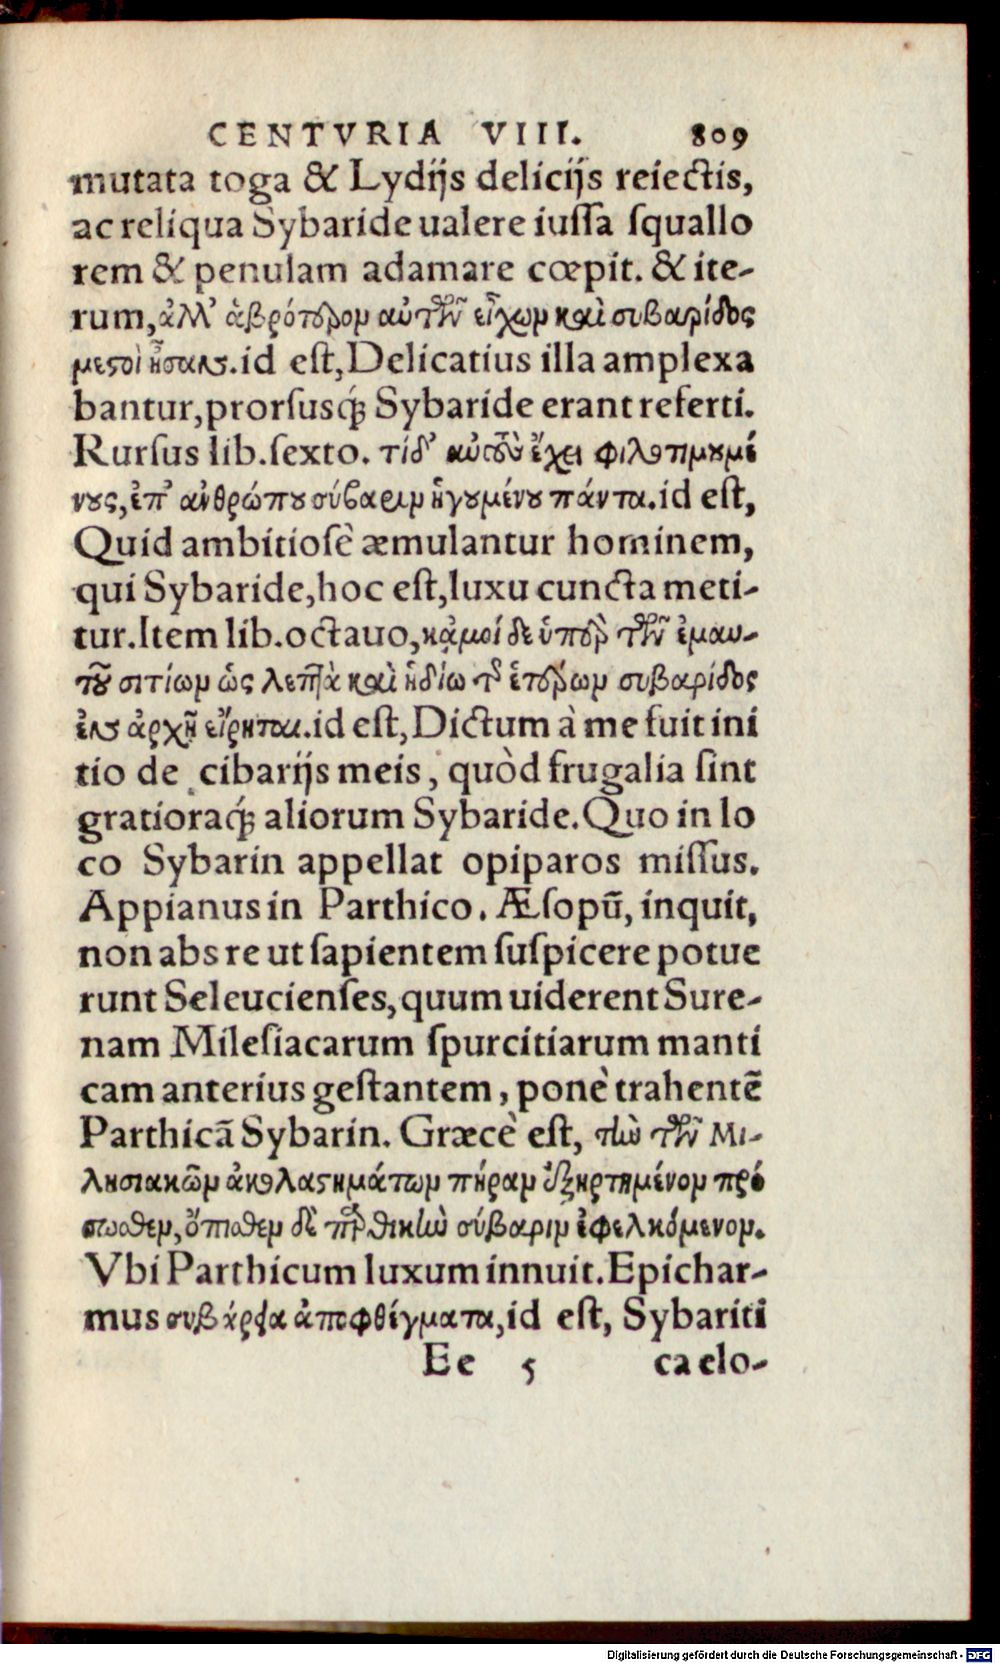 CENTVRIA VIII. 809
mutata toga & Lydijs delicijs reiectis,
ac reliqua Sybaride ualere iuſſa ſquallo
rem & penulam adamare cœpit. & ite-
rum, ἀλλ' ἁβρότερον αὐτῶν εἶχον καὶ συβαρίδος
μεστοὶ ἦσαν. id eſt, Delicatius illa amplexa
bantur, prorſusq́ꝫ Sybaride erant referti.
Rurſus lib. ſexto. τί δ' αὐτοὺς ἔχει φιλοτιμουμέ
νους, ἐπ' ἀνθρώπου σύβαριν ἡγουμένου πάντα. id eſt,
Quid ambitioſè æmulantur hominem,
qui Sybaride, hoc eſt, luxu cuncta meti-
tur. Item lib. octauo, κἀμοί δε ὑπὲρ τῶν ἐμαυ-
τοῦ σιτίων ὡς λεπτὰ καὶ ἡδίω τῆς ἑτέρων συβαρίδος
ἐν ἀρχῇ εἴρηται. id eſt, Dictum à me fuit ini
tio de cibarijs meis, quòd frugalia ſint
gratioraq́ꝫ aliorum Sybaride. Quo in lo
co Sybarin appellat opiparos miſſus.
Appianus in Parthico. Æſopũ, inquit,
non abs re ut ſapientem ſuſpicere potue
runt Seleucienſes, quum uiderent Sure-
nam Mileſiacarum ſpurcitiarum manti
cam anterius geſtantem, ponè trahentẽ
Parthicã Sybarin. Græcè eſt, τὴν τῶν Μι-
λησιακῶν ἀκολαστημάτων πήραν ἐξηρτημένον πρό
σωθεν, ὄπισθεν δὲ παρθικὴν σύβαριν ἐφελκόμενον.
Vbi Parthicum luxum innuit. Epichar-
mus ἀποφθέγματα, id eſt, Sybariti
Ee 5 ca elo-
Digitalisierung gefördert durch die Deutsche Forschungsgemeinschaft - DFG